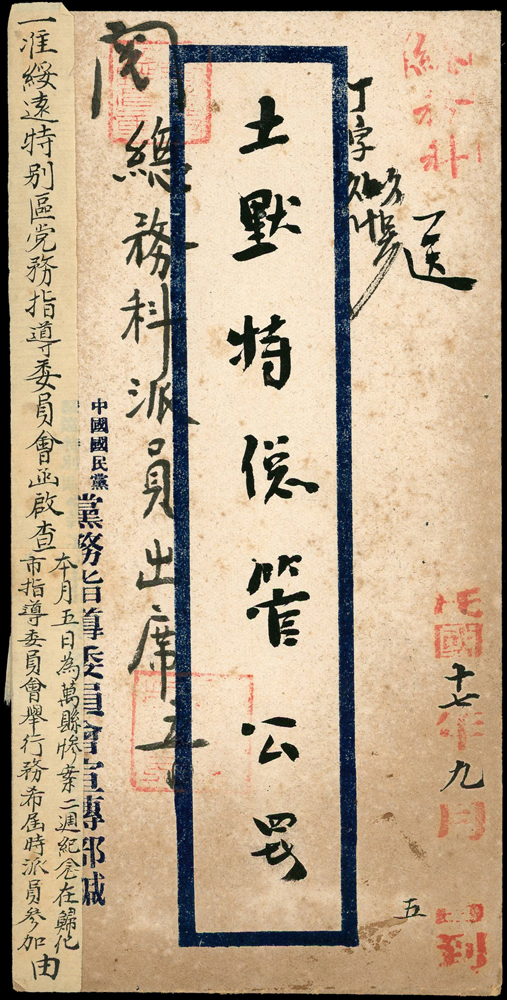 總務科
丁字第
號
送
民國十七年九月
五
土默特總管公署
閱
總務科派員出席 五
中國國民黨
黨務指導委員會宣傳部緘
一准綏遠特別區党務指導委員會函啟查
本月五日為萬縣慘案二週紀念在歸化
市指導委員會舉行務希屆時派員參加
由